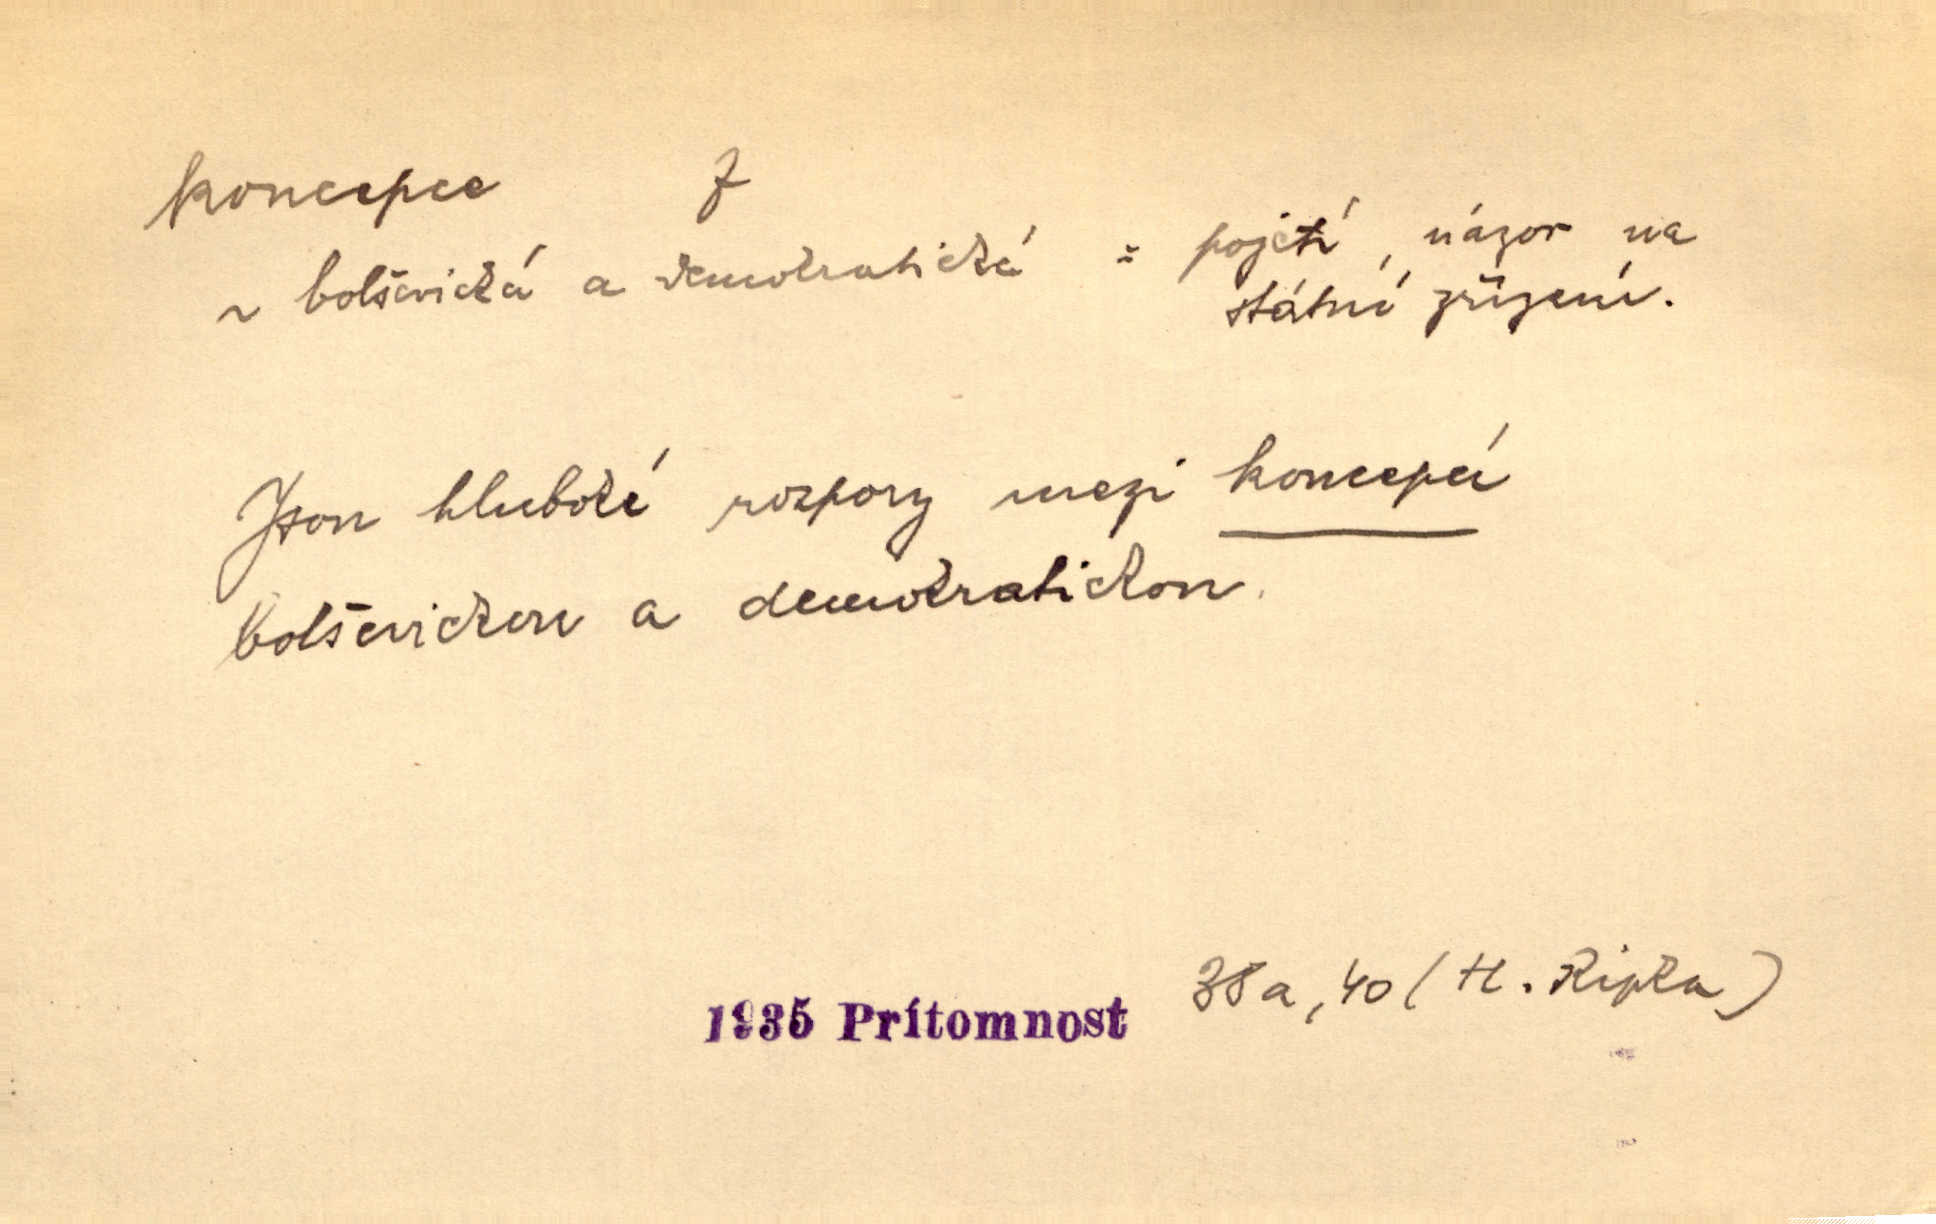 koncepce f
~ bolševická a demokratická = pojetí, názor na
státní zřízení.
Jsou hluboké rozpory mezi koncepcí
bolševickou a demokratickou.
1935 Prítomnost 38a, 40 (H. Ripka)